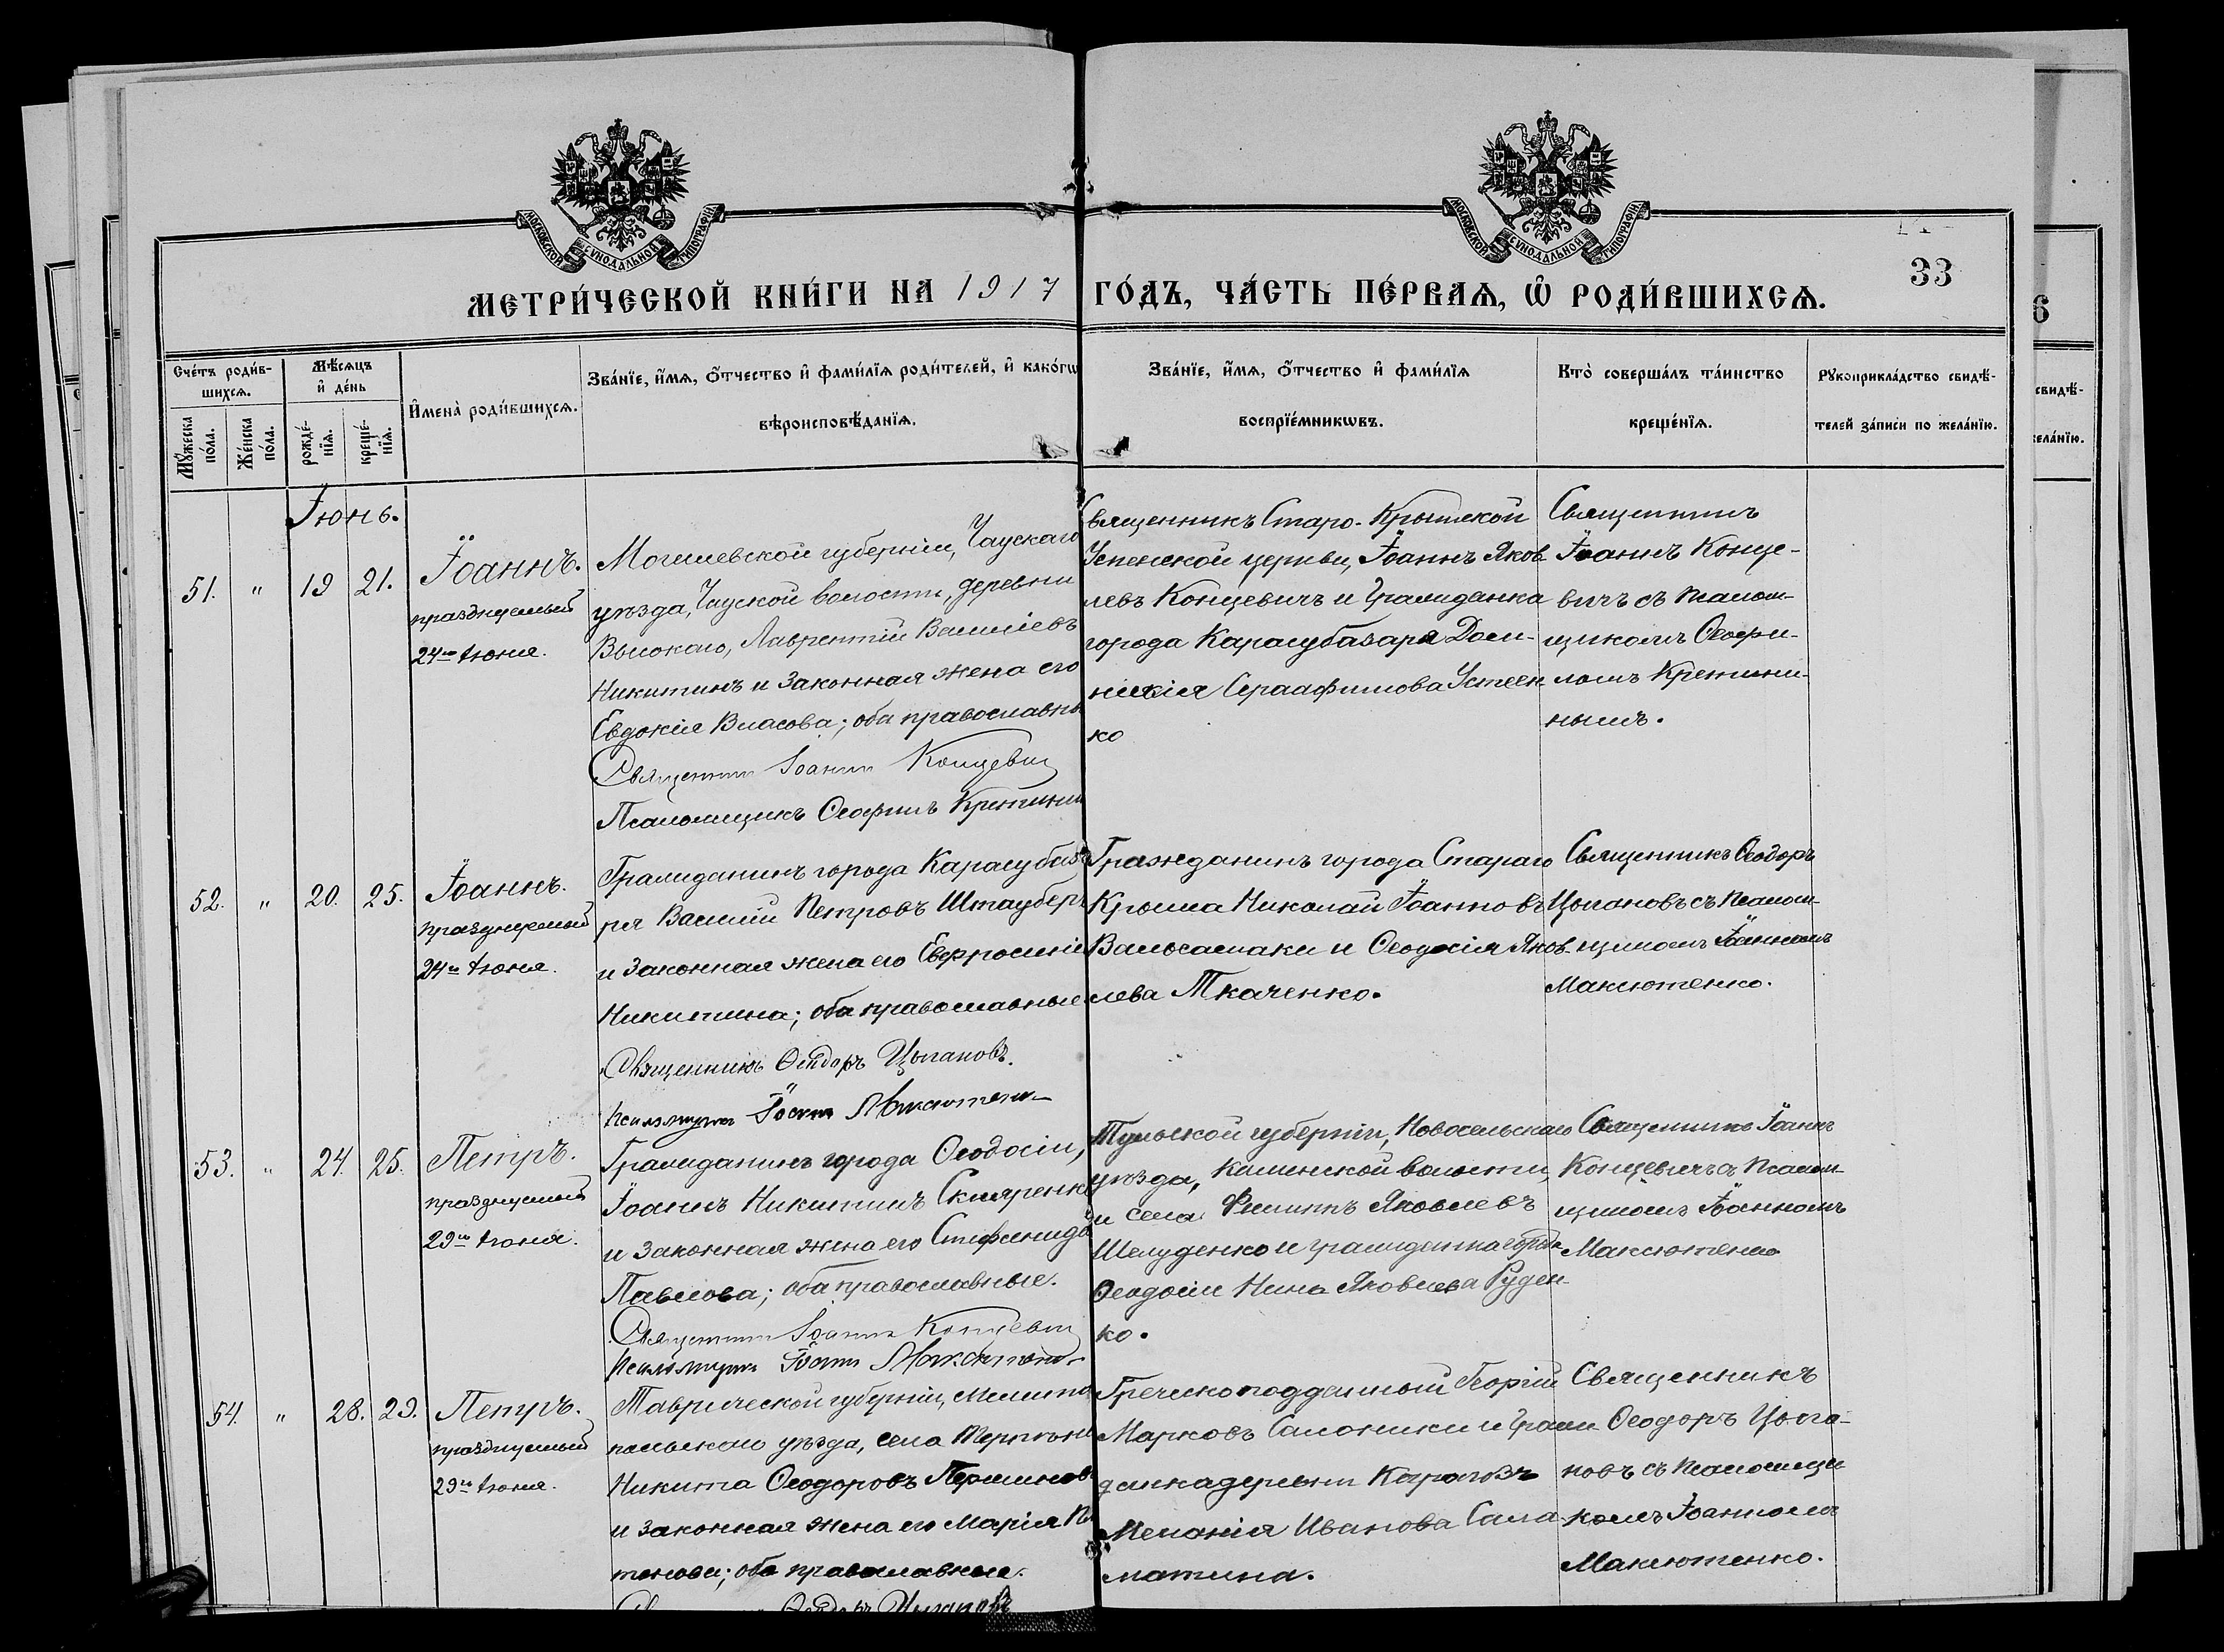 МОСКОВСКОЙ СѴНОДАЛЬНОЙ ТИПОГРАФІИ
МОСКОВСКОЙ СѴНОДАЛЬНОЙ ТИПОГРАФІИ
МЕТРИ́ЧЕСКОЙ КНИ́ГИ НА 1917 ГО́ДЪ, ЧА́СТЬ ПЕ́РВАѦ, Ѿ РОДИ́ВШИХСѦ.
33
6
Сче́тъ роди́в-
шихсѧ.
Мѣ́сѧцъ
и҆ де́нь
Мꙋ́жеска
по́ла.
Же́нска
по́ла.
рожде́-
нїѧ.
креще́-
нїѧ.
И҆мена̀ роди́вшихсѧ.
Зва́нїе, и҆́мѧ, ѻ҆́тчество и҆ фами́лїѧ роди́телей, и҆ како́гѡ
вѣроисповѣ́данїѧ.
Зва́нїе, и҆́мѧ, ѻ҆́тчество и҆ фами́лїѧ
воспрїе́мникѡвъ.
Кто̀ соверша́лъ та́инство
креще́нїѧ.
Рꙋкоприкла́дство свидѣ́-
телей за́писи по жела́нїю.
свидѣ́-
жела́нїю.
Іюнь.
51. " 19 21.
Іоаннъ.
празднуемый
24го Іюня.
Могилевской губерніи, Чаускаго
уѣзда, Чауской волости, деревни
Высокаго, Лаврентій Василіевъ
Никитинъ и законная жена его
Евдокія Власова; оба православные
Священникъ Іоаннъ Концевичъ
Псаломщикъ Ѳеофилъ
Священникъ Старо-Крымской
Успенской церкви, Іоаннъ Яков
левъ Концевичъ и гражданка
города Карасубазара Доми-
никія Серафимова Устеен
ко
Священникъ
Іоаннъ Конце-
вичъ съ псалом-
щикомъ Ѳеофи-
ломъ
нымъ.
52. " 20. 25.
Іоаннъ.
празднуемый
24го Іюня.
Гражданинъ города Карасубаза
ра Василій Петровъ Штаубергъ
и законная жена его Евфросинія
Никитина; оба православные
Священникъ Ѳеодоръ Цыгановъ.
Псаломщикъ Іоаннъ Максютенко
Гражданинъ города Стараго
Крыма Николай Іоанновъ
Вальсамаки и Ѳеодосія Яков-
лева Ткаченко.
Священникъ Ѳеодоръ
Цыгановъ съ псалом-
щикомъ Іоанномъ
Максютенко.
53. " 24. 25.
Петръ.
празднуемый
29го Іюня.
Гражданинъ города Ѳеодосіи,
Іоаннъ Никитинъ Скляренко
и законная жена его Стефанида
Павлова; оба православные.
Священникъ Іоаннъ Концевичъ
Псаломщикъ Іоаннъ Максютенко
Тульской губерніи, Новосельскаго
уѣзда, Каменской волости,
и села Филиппъ Яковлевъ
Шелуденко и гражданка города
Ѳеодосіи Нина Яковлева Руден-
ко.
Священникъ Іоаннъ
Концевичъ съ псалом-
щикомъ Іоанномъ
Максютенко
54. " 28. 29.
Петръ.
празднуемый
29го Іюня.
Таврической губерніи, Мелито
польскаго уѣзда, села Терпѣнія
Никита Ѳеодоровъ
и законная жена его Марія
оба православные.
Ѳеодоръ Цыгановъ
Греческоподданный Георгій
Марковъ Салоники и граж
данка деревни
Меланія Иванова Сала
матина.
Священникъ
Ѳеодоръ Цыга-
новъ съ псаломщи
комъ Іоанномъ
Максютенко.